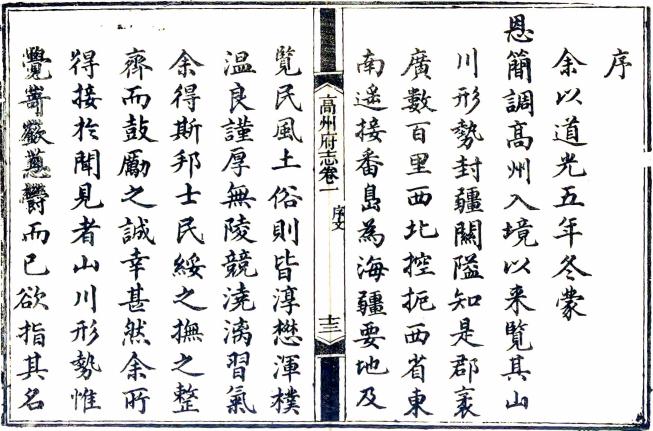 序
余以道光五年冬蒙
恩簡調高州入境以来覽其山
川形勢封疆關隘知是郡袤
廣數百里西北控扼西省東
南遥接番島為海疆要地及
高州府志卷一
序文
十三
覽民風土俗則皆淳懋渾樸
温良謹厚無陵競澆漓習氣
余得斯邦士民綏之撫之整
齊而鼓勵之誠幸甚然余所
得接於聞見者山川形勢惟
覺鬱而已欲指其名